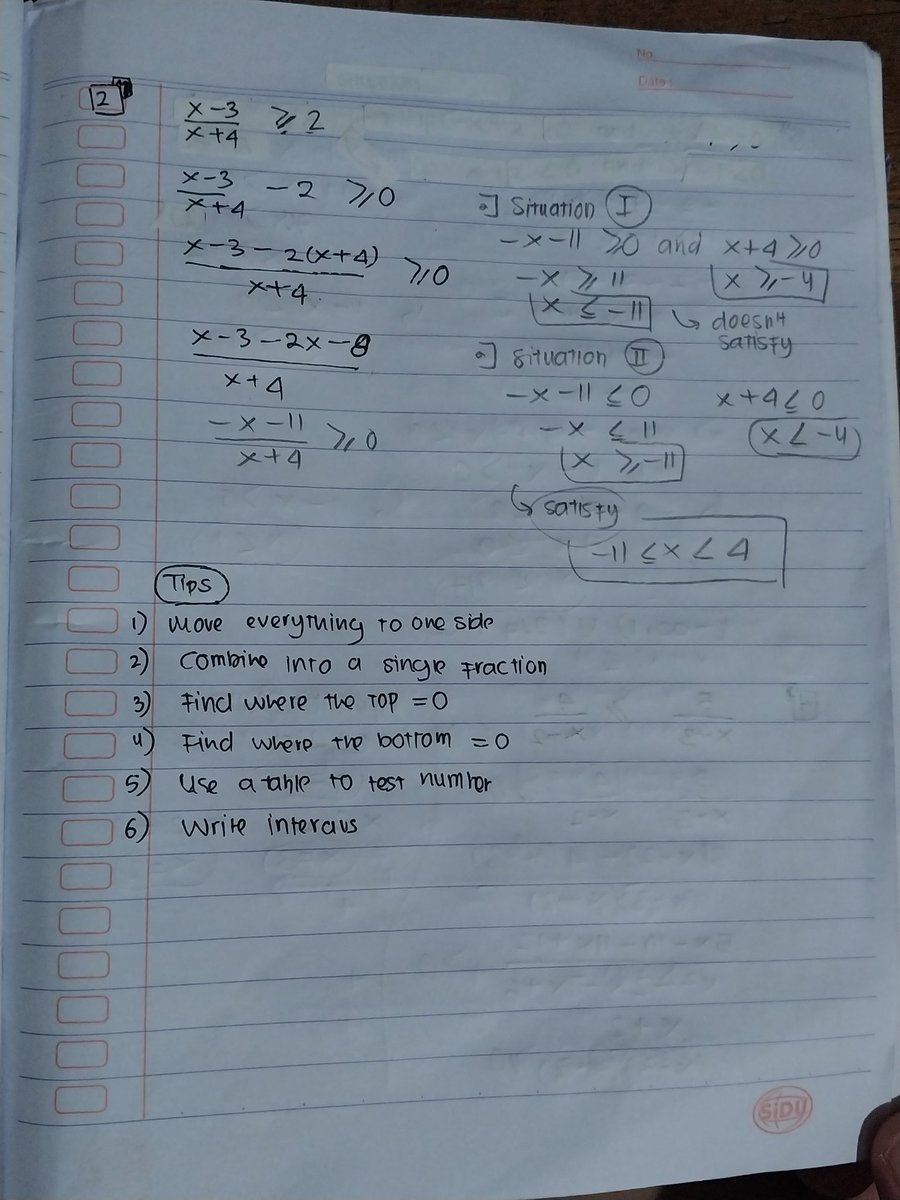 No.
Date:
2
x-3/x+4 ≥ 2
x-3/x+4 - 2 ≥ 0
x-3-2(x+4)/x+4 ≥ 0
x-3-2x-8/x+4
-x-11/x+4 ≥ 0
•] Situation I
-x-11 ≥ 0 and x+4 ≥ 0
-x ≥ 11 x ≥ -4
x ≤ -11 ↳ doesn't
satisfy
•] Situation II
-x-11 ≤ 0 x+4 ≤ 0
-x ≤ 11 x < -4
x ≥ -11
↳ satisfy
-11 ≤ x < 4
Tips
1) Move everything to one side
2) Combine into a single Fraction
3) Find where the TOP = 0
4) Find where the bottom = 0
5) Use a table to test number
6) Write intervus
SiDU